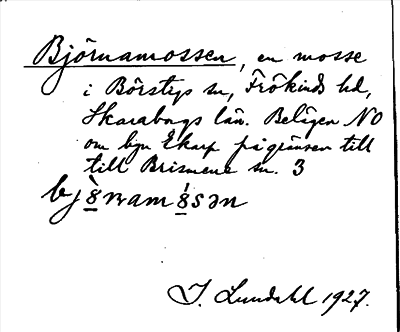 Björnamossen, en mosse
i Börstigs sn, Frökinds hd,
Skaraborgs län. Belägen NO
om byn Ekarp på gränsen till
till Brismene sn. 3
bjö̀rnamö́sən
I. Lundahl 1927.